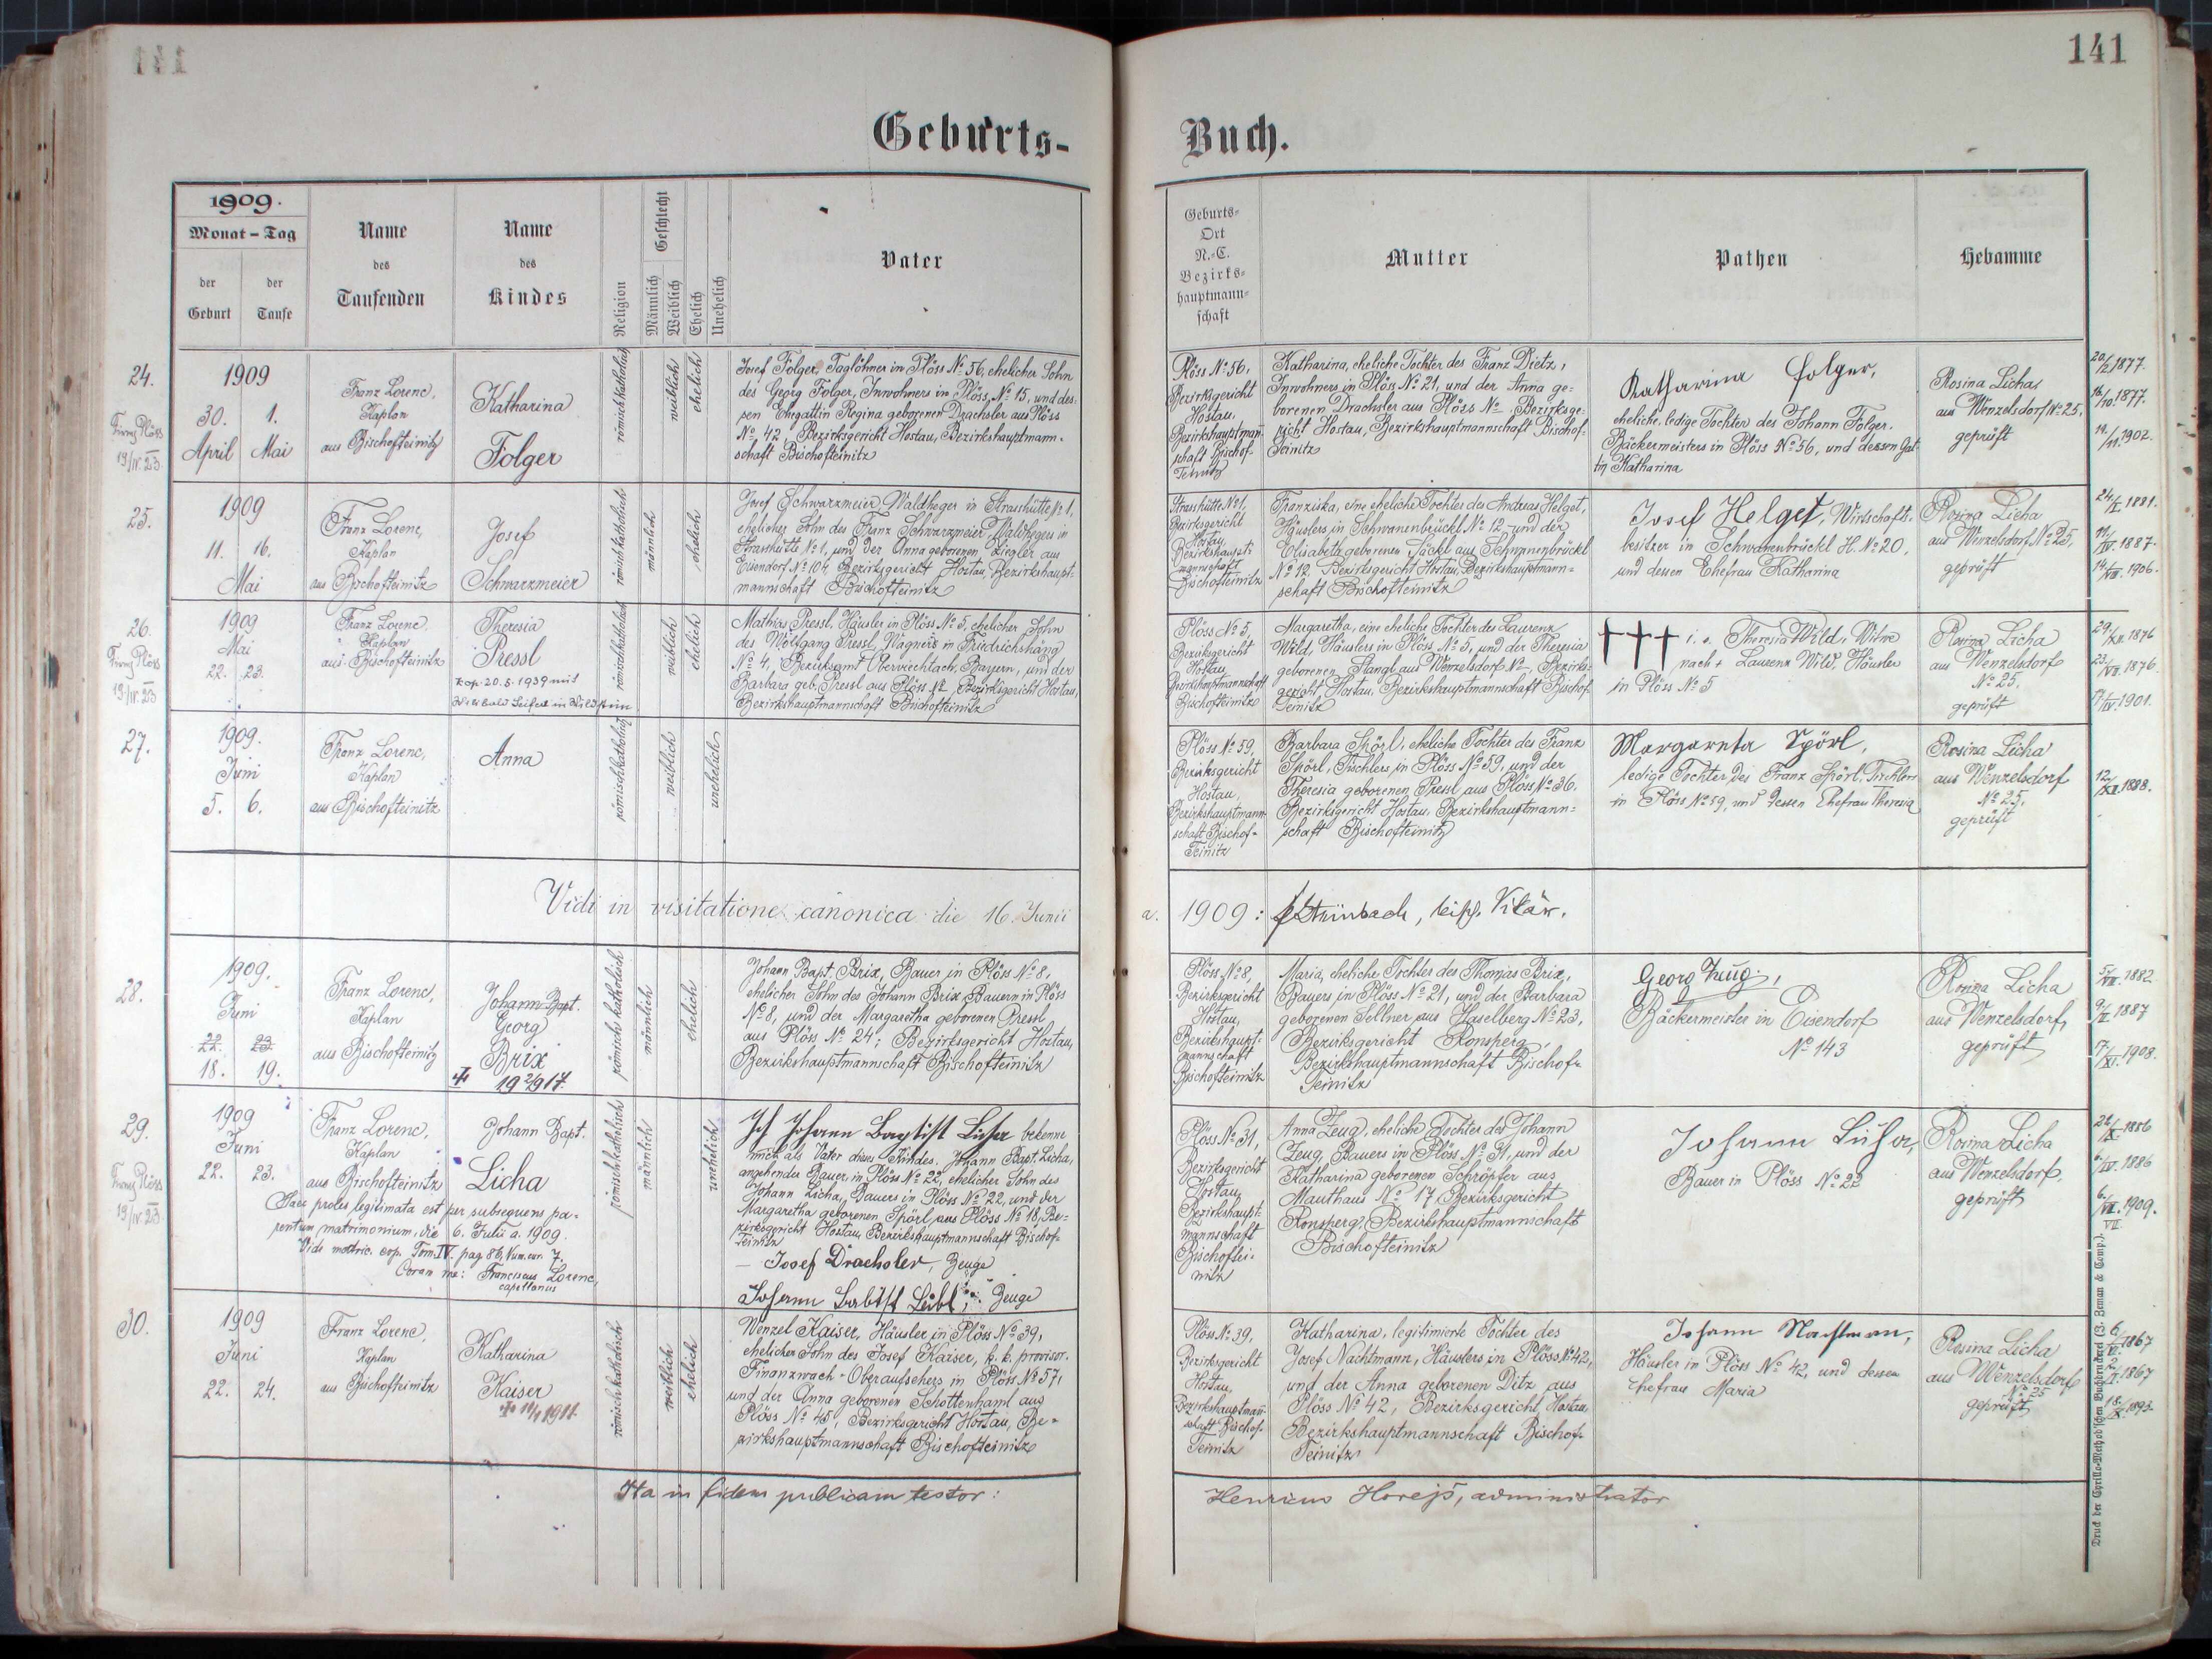 141
Geburts-
Buch.
1909.
Monat – Tag
der
Geburt
der
Taufe
Name
des
Taufenden
Name
des
Kindes
Religion
Geschlecht
Männlich
Weiblich
Ehelich
Unehelich
Vater
Geburts-
Ort
N.-C.
Bezirks-
hauptmann-
schaft
Mutter
Pathen
Hebamme
24.
Firmg Plöss
19/IV. 23
1909
30. 1.
April Mai
Franz Lorenc,
Kaplan
aus Bischofteinitz
Katharina
Folger
römischkatholisch
weiblich
ehelich
Josef Folger, Taglöhner in Plöss No 56, ehelicher Sohn
des Georg Folger, Inwohners in Plöss No 15, und des-
sen Ehegattin Regina geborenen Drachsler aus Plöss
No 42, Bezirksgericht Hostau, Bezirkshauptmann-
schaft Bischofteinitz
Plöss No 56,
Bezirksgericht
Hostau,
Bezirkshauptmann-
schaft Bischof-
Teinitz
Katharina, eheliche Tochter des Franz Dietz,
Inwohners in Plöss No 21, und der Anna ge-
borenen Drachsler aus Plöss No Bezirksge-
richt Hostau, Bezirkshauptmannschaft Bischof-
Teinitz
Katharina Folger,
eheliche ledige Tochter des Johann Folger.
Bäckermeisters in Plöss No 56, und dessen Gat-
tin Katharina
Rosina Licha
aus Wenzelsdorf No 25,
geprüft
20/2 1877.
16/10. 1877.
/11. 1902.
25.
1909
11. 16.
Mai
Franz Lorenc,
Kaplan
aus Bischofteinitz
Josef
Schwarzmeier
römischkatholisch
männlich
ehelich
Josef Schwarzmeier, Waldheger in Strasshütte No 1,
ehelicher Sohn des Franz Schwarzmeier, Waldhegers in
Strasshütte No 1, und der Anna geborenen Ziegler aus
Eisendorf No 104 Bezirksgericht Hostau, Bezirkshaupt-
mannschaft Bischofteinitz
Strasshütte No 1,
Bezirksgericht
Hostau,
Bezirkshaupt-
mannschaft
Bischofteinitz
Franziska, eine eheliche Tochter des Andreas Helget,
Häuslers in Schwanenbrückl No 12 und der
Elisabeth geborenen Säckl aus Schwanenbrückl
No 12, Bezirksgericht Hostau, Bezirkshauptmann-
schaft Bischofteinitz
Josef Helget, Wirtschafts-
besitzer in Schwanenbrückl H. No 20,
und dessen Ehefrau Katharina
Rosina Licha
aus Wenzelsdorf No 25,
geprüft
24/ 1881.
/IV. 1887.
14/VIII. 1906.
26.
Firmg Plöss
19./IV. 23
1909
Mai
22. 23.
Franz Lorenc,
Kaplan
aus Bischofteinitz
Theresia
Pressl
kop. 20. 5. 1939 mit
Willibald Seifert in Wildstein
römischkatholisch
weiblich
ehelich
Mathias Pressl, Häusler in Plöss No 5, ehelicher Sohn
des Wolfgang Pressl, Wagners in Friedrichshäng
No 4, Bezirksamt Oberviechtach, Bayern, und der
Barbara geb. Pressl aus Plöss No Bezirksgericht Hostau,
Bezirkshauptmannschaft Bischofteinitz
Plöss No 5,
Bezirksgericht
Hostau,
Bezirkshauptmannschaft
Bischofteinitz
Margaretha, eine eheliche Tochter des Laurenz
Wild, Häuslers in Plöss No 5, und der Theresia
geborenen Stangl aus Wenzelsdorf No –, Bezirks-
gericht Hostau, Bezirkshauptmannschaft Bischof-
Teinitz
††† i. e. Theresia Wild, Witwe
nach † Laurenz Wild, Häusler
in Plöss No 5
Rosina Licha
aus Wenzelsdorf
No 25,
geprüft
29./XII. 1876
23./VII. 1876.
17/IV. 1901.
27.
1909.
Juni
5. 6.
Franz Lorenc,
Kaplan
aus Bischofteinitz
Anna
römischkatholisch
weiblich
unehelich
Plöss No 59,
Bezirksgericht
Hostau,
Bezirkshauptmann-
schaft Bischof-
Teinitz
Barbara Spörl, eheliche Tochter des Franz
Spörl, Tischlers in Plöss No 59, und der
Theresia geborenen Pressl aus Plöss No 36.
Bezirksgericht Hostau, Bezirkshauptmann-
schaft Bischofteinitz
Margareta Spörl,
ledige Tochter des Franz Spörl, Tischlers
in Plöss No 59, und dessen Ehefrau Theresia
Rosina Licha
aus Wenzelsdorf
No 25,
geprüft
12./XII. 1888.
Vidi in visitatione canonica die 16. Junii
a. 1909: Steinbach, bisch. Vikär.
28.
1909.
Juni
22. 23.
18. 19.
Franz Lorenc,
Kaplan
aus Bischofteinitz
Johann Bapt.
Georg
Brix
✝ 19 2/9 17.
römisch katholisch
männlich
ehelich
Johann Bapt. Brix, Bauer in Plöss No 8,
ehelicher Sohn des Johann Brix, Bauern in Plöss
No 8, und der Margaretha geborenen Pressl
aus Plöss No 24; Bezirksgericht Hostau,
Bezirkshauptmannschaft Bischofteinitz
Plöss No 8,
Bezirksgericht
Hostau,
Bezirkshaupt-
mannschaft
Bischofteinitz
Maria, eheliche Tochter des Thomas Brix,
Bauers in Plöss No 21, und der Barbara
geborenen Sellner aus Haselberg No 23,
Bezirksgericht Ronsperg,
Bezirkshauptmannschaft Bischof-
Teinitz
Georg Zeug,
Bäckermeister in Eisendorf
No 143
Rosina Licha
aus Wenzelsdorf,
geprüft
5./VII. 1882.
9/ 1887
17/XI. 1908.
29.
Firmg Plöss
19/IV. 23.
1909
Juni
22. 23.
Franz Lorenc,
Kaplan
aus Bischofteinitz
Johann Bapt.
Licha
Haec proles legitimata est per subsequens pa-
rentum matrimonium, die 6. Julii a. 1909.
Vide matric. cop. Tom. IV. pag 86, Num. cur. 7.
Coram me: Franciscus Lorenc,
capellanus
römischkatholisch
männlich
unehelich
Ich Johann Baptist Licha bekenne
mich als Vater dieses Kindes. Johann Bapt. Licha,
angehender Bauer, in Plöss No 22, ehelicher Sohn des
Johann Licha, Bauers in Plöss No 22, und der
Margaretha geborenen Spörl aus Plöss No 18, Be-
zirksgericht Hostau, Bezirkshauptmannschaft Bischof-
Teinitz
– Josef Drachsler, Zeuge
Johann Babtist Leibl, Zeuge
Plöss No 31,
Bezirksgericht
Hostau,
Bezirkshaupt-
mannschaft
Bischoftei-
nitz
Anna Zeug, eheliche Tochter des Johann
Zeug, Bauers in Plöss No 31, und der
Katharina geborenen Schröpfer aus
Mauthaus No 17, Bezirksgericht
Ronsperg, Bezirkshauptmannschaft
Bischofteinitz
Johann Licha,
Bauer in Plöss No 22
Rosina Licha
aus Wenzelsdorf,
geprüft
/X. 1886
/IV. 1886
6./VII. 1909.
VII
30.
1909
Juni
22. 24.
Franz Lorenc,
Kaplan
aus Bischofteinitz
Katharina
Kaiser
1911.
römischkatholisch
weiblich
ehelich
Wenzel Kaiser, Häusler in Plöss No 39,
ehelicher Sohn des Josef Kaiser, k. k. provisor.
Finanzwach-Oberaufsehers in Plöss No 57,
und der Anna geborenen Schottenhaml aus
Plöss No 45, Bezirksgericht Hostau, Be-
zirkshauptmannschaft Bischofteinitz
Plöss No 39,
Bezirksgericht
Hostau,
Bezirkshauptmann-
schaft Bischof-
Teinitz
Katharina, legitimierte Tochter des
Josef Nachtmann, Häuslers in Plöss No 42,
und der Anna geborenen Ditz aus
Plöss No 42, Bezirksgericht Hostau,
Bezirkshauptmannschaft Bischof-
Teinitz
Johann Nachtmann,
Häusler in Plöss No 42, und dessen
Ehefrau Maria
Rosina Licha
aus Wenzelsdorf
No 25
geprüft
1867
1867
1893.
Ita in fidem publicam testor:
Henricus Horejš, administrator
Druck der Cyrillo-Method'schen Buchdruckerei (J. Zeman & Comp.).